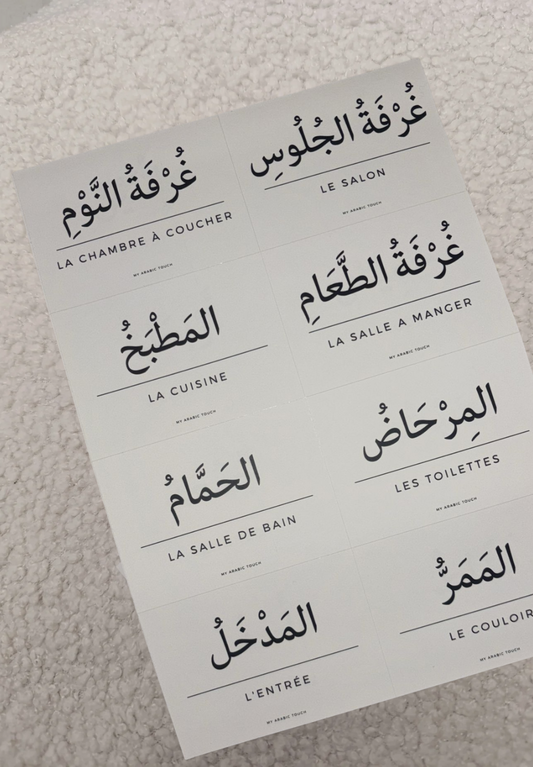 غُرْفَةُ النَّوْمِ
LA CHAMBRE À COUCHER
MY ARABIC TOUCH
غُرْفَةُ الجُلُوسِ
LE SALON
MY ARABIC TOUCH
المَطْبَخُ
LA CUISINE
MY ARABIC TOUCH
غُرْفَةُ الطَّعَامِ
LA SALLE A MANGER
MY ARABIC TOUCH
الحَمَّامُ
LA SALLE DE BAIN
MY ARABIC TOUCH
المِرْحَاضُ
LES TOILETTES
MY ARABIC TOUCH
المَدْخَلُ
L'ENTRÉE
MY ARABIC TOUCH
المَمَرُّ
LE COULOIR
MY ARABIC TOUCH